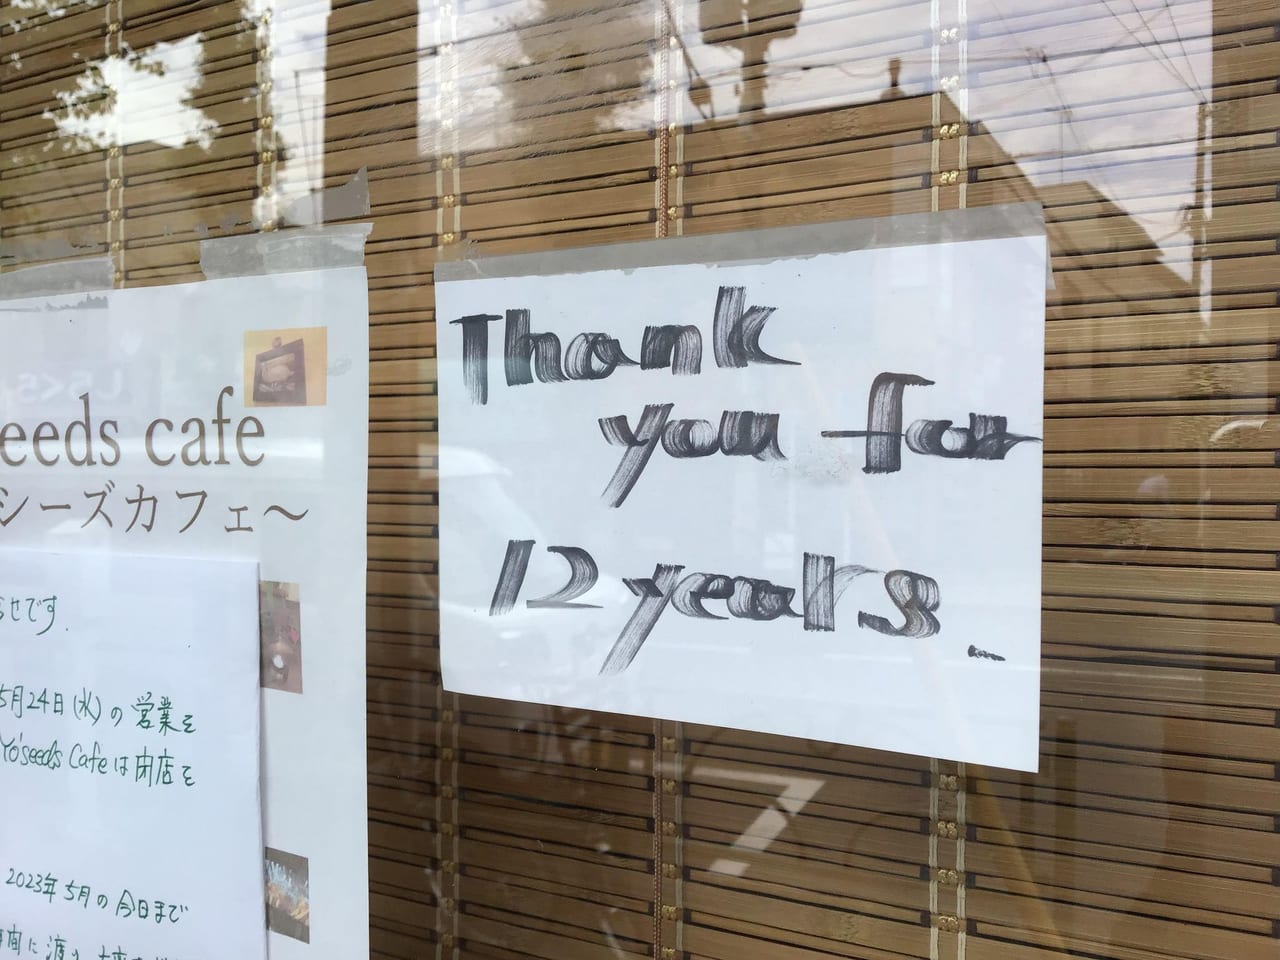 seeds cafe
シーズカフェ～
せです.
5月24日(水)の営業を
Yo'seeds Cafeは閉店を
2023年5月の今日まで
間に渡り
Thank
you for
12 years.